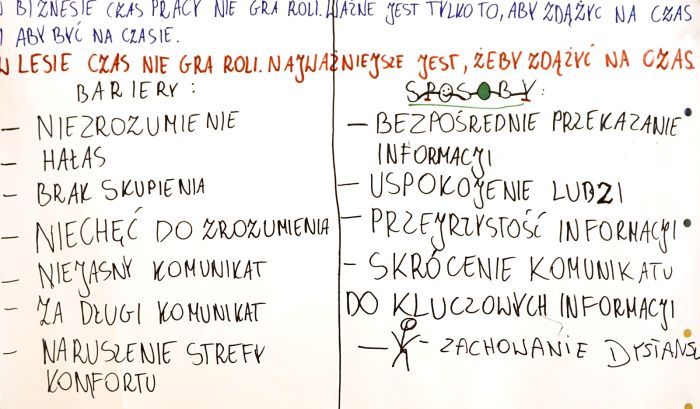 W BIZNESIE CZAS PRACY NIE GRA ROLI. WAŻNE JEST TYLKO TO, ABY ZDĄŻYĆ NA CZAS
I ABY BYĆ NA CZASIE.
W LESIE CZAS NIE GRA ROLI. NAJWAŻNIEJSZE JEST, ŻEBY ZDĄŻYĆ NA CZAS.
BARIERY:
- NIEZROZUMIENIE
- HAŁAS
- BRAK SKUPIENIA
- NIECHĘĆ DO ZROZUMIENIA
- NIEJASNY KOMUNIKAT
- ZA DŁUGI KOMUNIKAT
- NARUSZENIE STREFY
KOMFORTU
SPOSOBY:
- BEZPOŚREDNIE PRZEKAZANIE
INFORMACJI
- USPOKOJENIE LUDZI
- PRZEJRZYSTOŚĆ INFORMACJI
- SKRÓCENIE KOMUNIKATU
DO KLUCZOWYCH INFORMACJI
- - ZACHOWANIE DYSTANSU